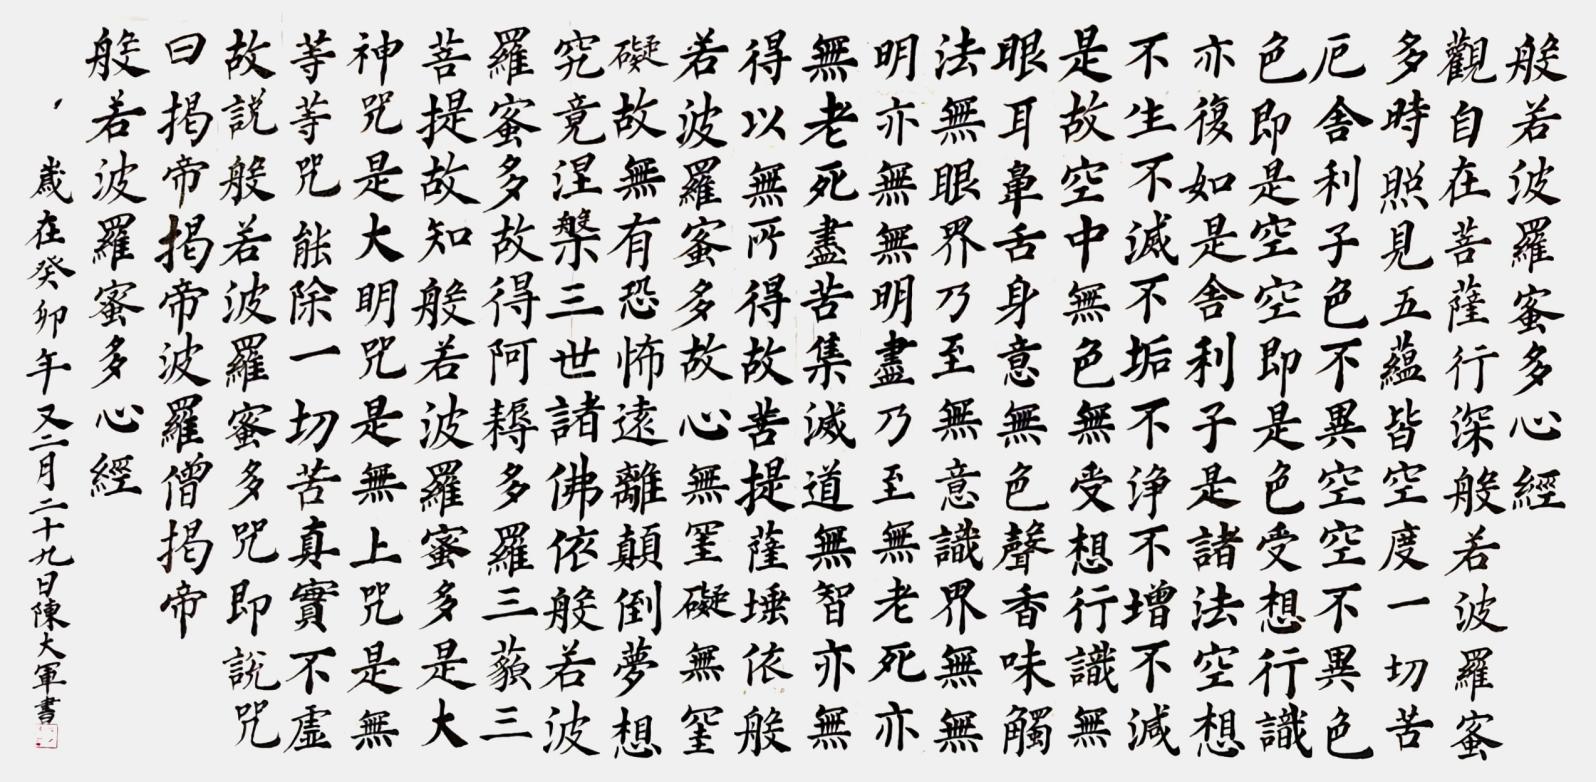 般若波羅蜜多心經
觀自在菩薩行深般若波羅蜜
多時照見五蘊皆空度一切苦
厄舍利子色不異空空不異色
色即是空空即是色受想行識
亦復如是舍利子是諸法空想
不生不滅不垢不淨不增不減
是故空中無色無受想行識無
眼耳鼻舌身意無色聲香味觸
法無眼界乃至無意識界無無
明亦無無明盡乃至無老死亦
無老死盡苦集滅道無智亦無
得以無所得故菩提薩埵依般
若波羅蜜多故心無罣礙無罣
礙故無有恐怖遠離顛倒夢想
究竟涅槃三世諸佛依般若波
羅蜜多故得阿耨多羅三藐三
菩提故知般若波羅蜜多是大
神咒是大明咒是無上咒是無
等等咒能除一切苦真實不虛
故說般若波羅蜜多咒即說咒
曰揭帝揭帝波羅僧揭帝
般若波羅蜜多心經
歲在癸卯年又二月二十九日陳大軍書